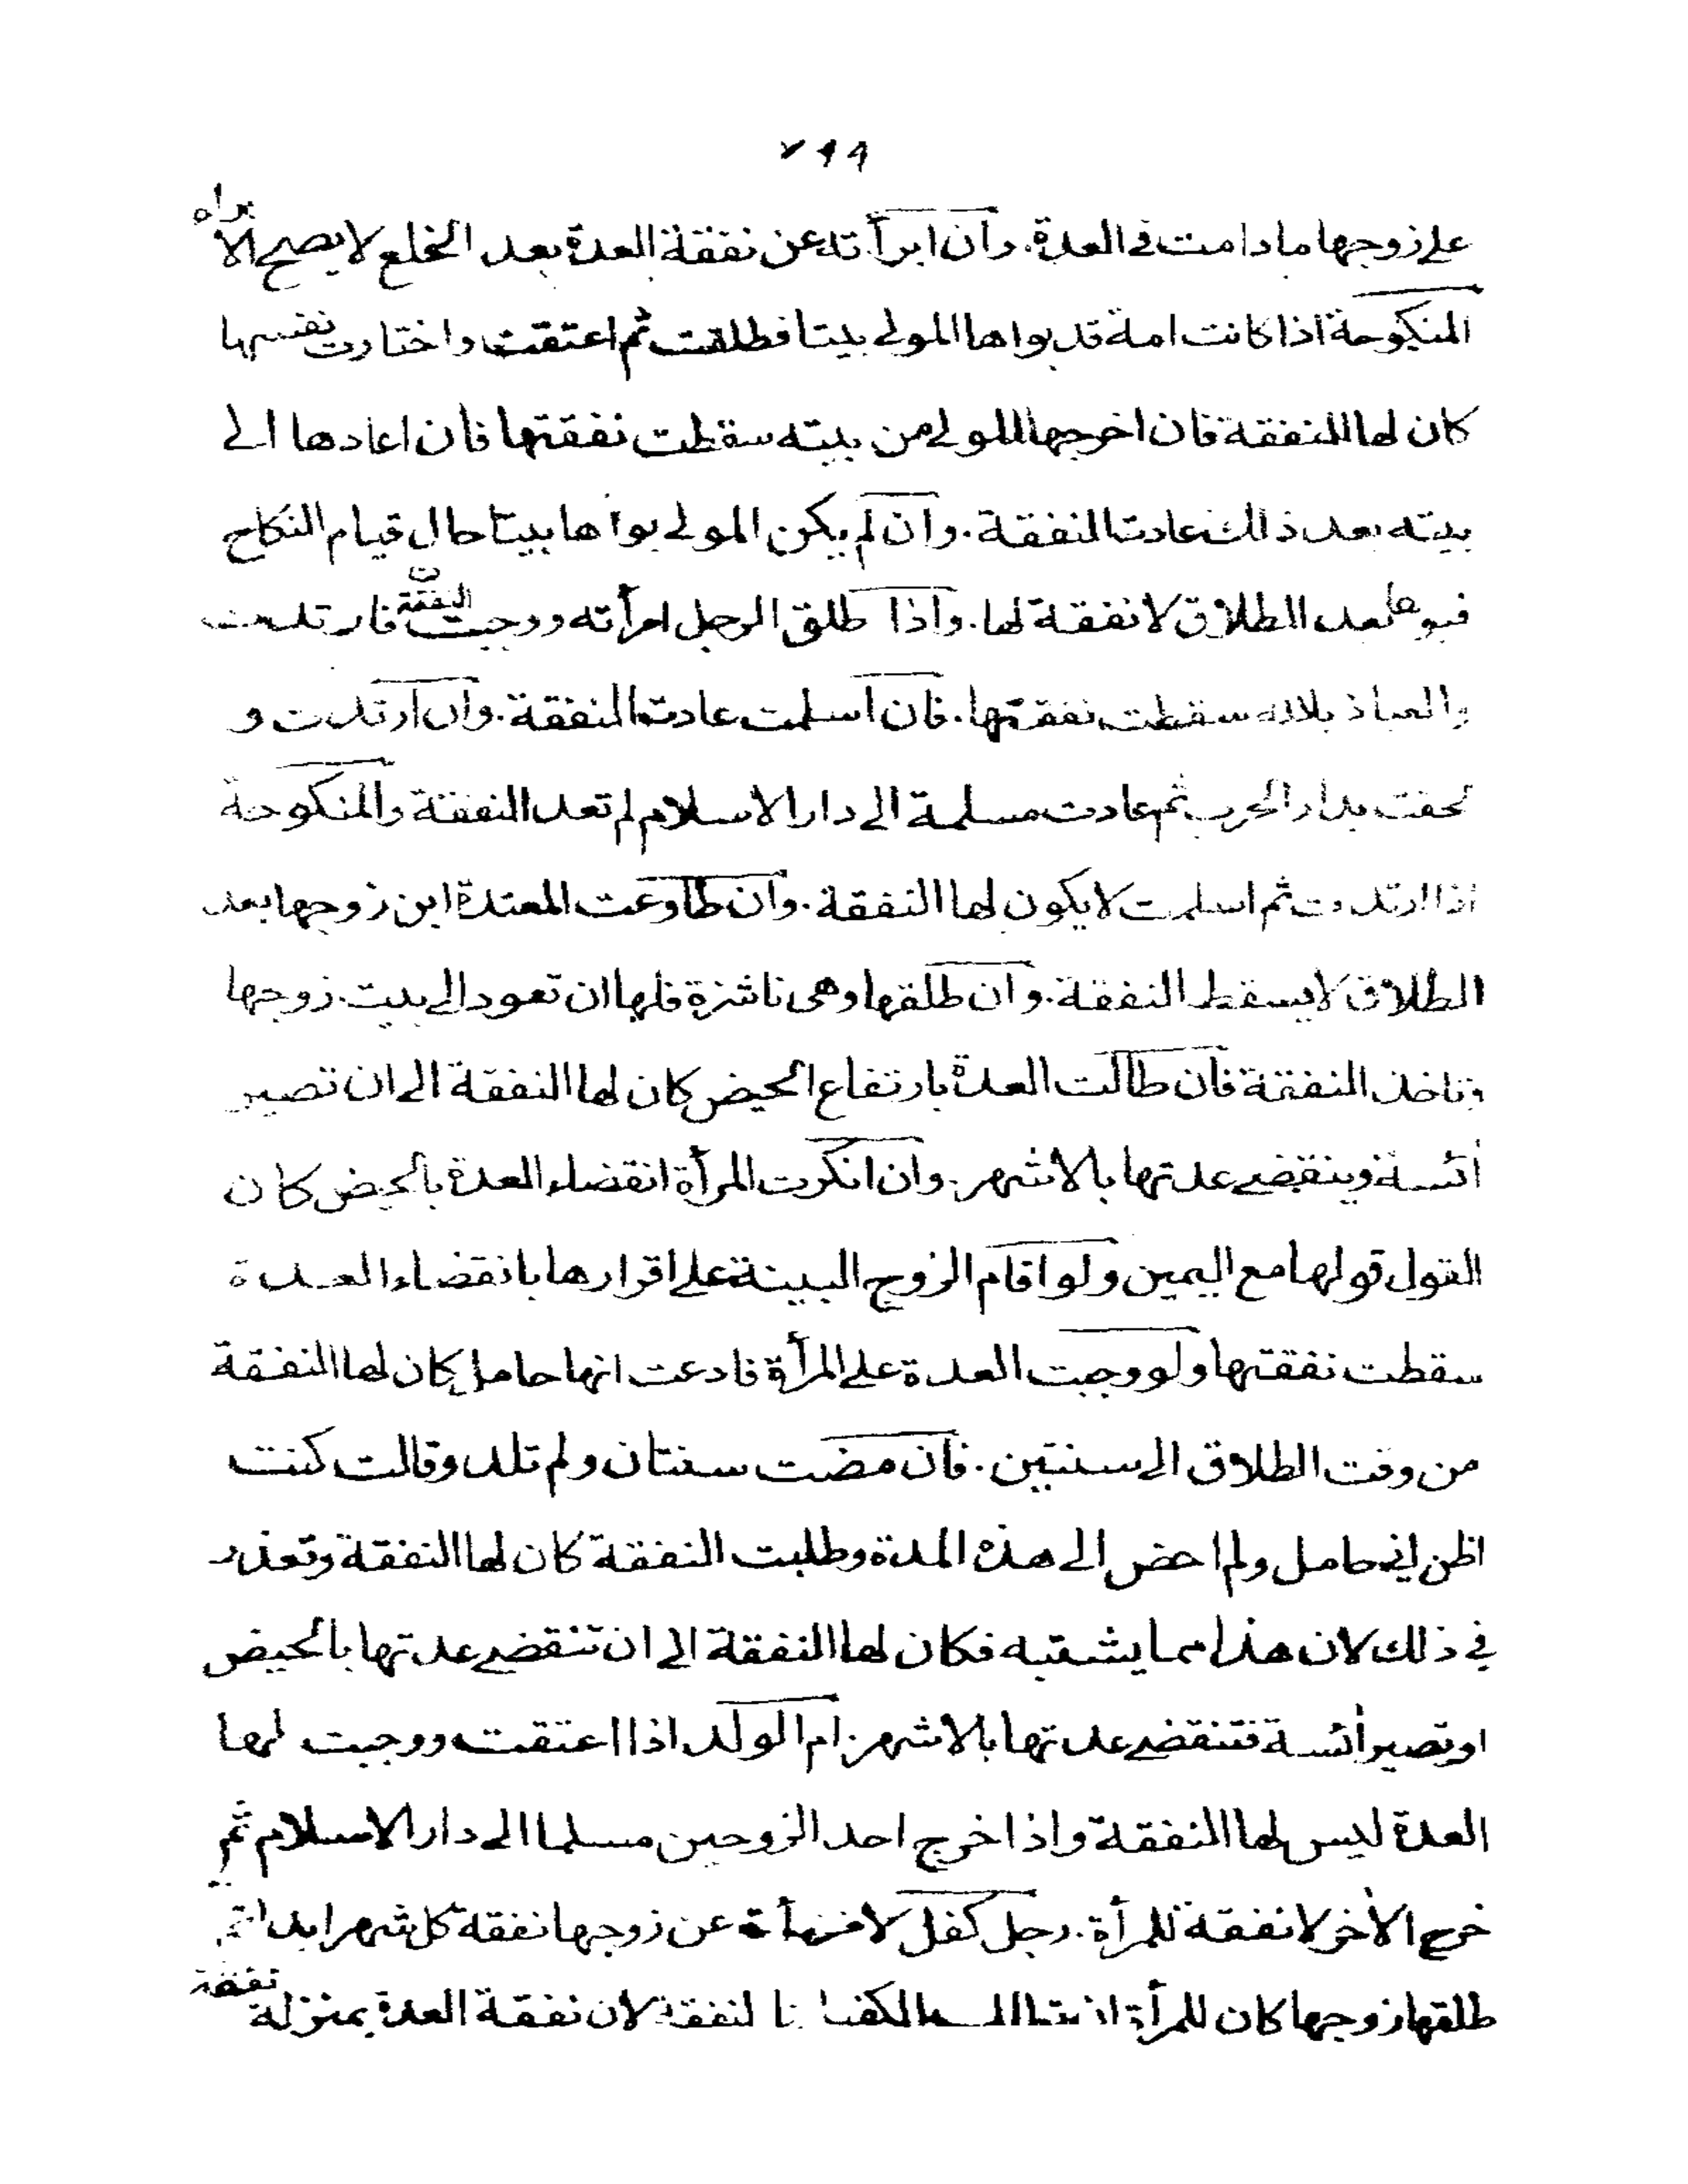 ٧٩٩
على زوجها ما دامت فى العدة. وان ابرأته عن نفقة العدة بعد الخلع لا يصح الابراء
المنكوحة اذا كانت امة قد بواها المولى بيتا فطلقت ثم اعتقت واختارت نفسها
كان لها النفقة فان اخرجها المولى من بيته سقطت نفقتها فان اعادها الى
بيته بعد ذلك عادت النفقة. وان لم يكن المولى بواها بيتا حال قيام النكاح
فبوها بعد الطلاق لا نفقة لها. واذا طلق الرجل امرأته ووجبت النفقة فارتدت
والعياذ بالله سقطت نفقتها. فان اسلمت عادت النفقة. وان ارتدت و
لحقت بدار الحرب ثم عادت مسلمة الى دار الاسلام لم تعد النفقة والمنكوحة
اذا ارتدت ثم اسلمت لا يكون لها النفقة. وان طاوعت المعتدة ابن زوجها بعد
الطلاق لا يسقط النفقة. وان طلقها وهى ناشزة فلها ان تعود الى بيت زوجها
وتاخذ النفقة فان طالت العدة بارتفاع الحيض كان لها النفقة الى ان تصير
أئسة وينقضى عدتها بالاشهر. وان انكرت المرأة انقضاء العدة بالحيض كان
القول قولها مع اليمين ولو اقام الزوج البينة على اقرارها بانقضاء العدة
سقطت نفقتها ولو وجبت العدة على المرأة فادعت انها حامل كان لها النفقة
من وقت الطلاق الى سنتين. فان مضت سنتان ولم تلد وقالت كنت
اظن انى حامل ولم احض الى هذه المدة وطلبت النفقة كان لها النفقة وتعذر
في ذلك لان هذا مما يشتبه فكان لها النفقة الى ان تنقضى عدتها بالحيض
او تصير أئسة فتنقضى عدتها بالاشهر. ام الولد اذا اعتقت ووجبت لها
العدة ليس لها النفقة واذا خرج احد الزوجين مسلما الى دار الاسلام ثم
خرج الأخر لا نفقة للمرأة. رجل كفل لامرأة عن زوجها نفقة كل شهر ابدا ثم
طلقها زوجها كان للمرأة ان تطالب الكفيل بالنفقة لان نفقة العدة بمنزلة نفقة